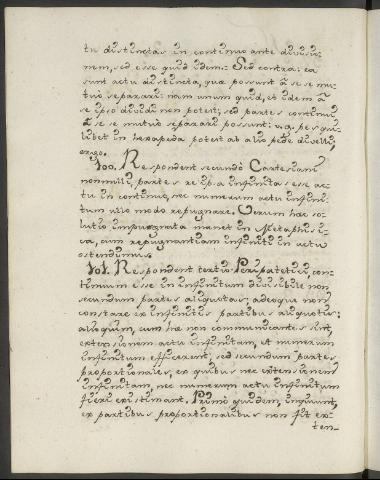 tu distinctas in continuo ante divisio-
nem, sed esse quid idem. Sed contra: ea
sunt actu distincta, quæ possunt à se mu-
tuò separari: nam unum quid, et idem à
se ipso dividi non potest; sed partes continui
à se se mutuò separari possunt: v.g. pes qui-
libet in hexapeda potest ab alio pede divelli,
ergo.
100. Respondent secundò Cartesiani
nonnulli, partes re ipsa infinitas esse ac-
tu in continuo, nec numerum actu infini-
tum ullo modo repugnare. Verum hæc so-
lutio impugnata manet in Metaphysi-
ca, cum repugnantiam infiniti in actu
ostendimus.
101. Respondent tertiò Peripatetici, con-
tinuum esse in infinitum divisibile non
secundum partes aliquotas; adeoque non
constare ex infinitis partibus aliquotis:
alioquim, cum hæ non communicantes sint,
extensionem actu infinitam, et numerum
infinitum efficerent; sed secundum partes
proportionales, ex quibus nec extensionem
infinitam, nec numerum actu infinitum
fieri existimant. Primò quidem, inquiunt,
ex partibus proportionalibus non fit ex-
ten-